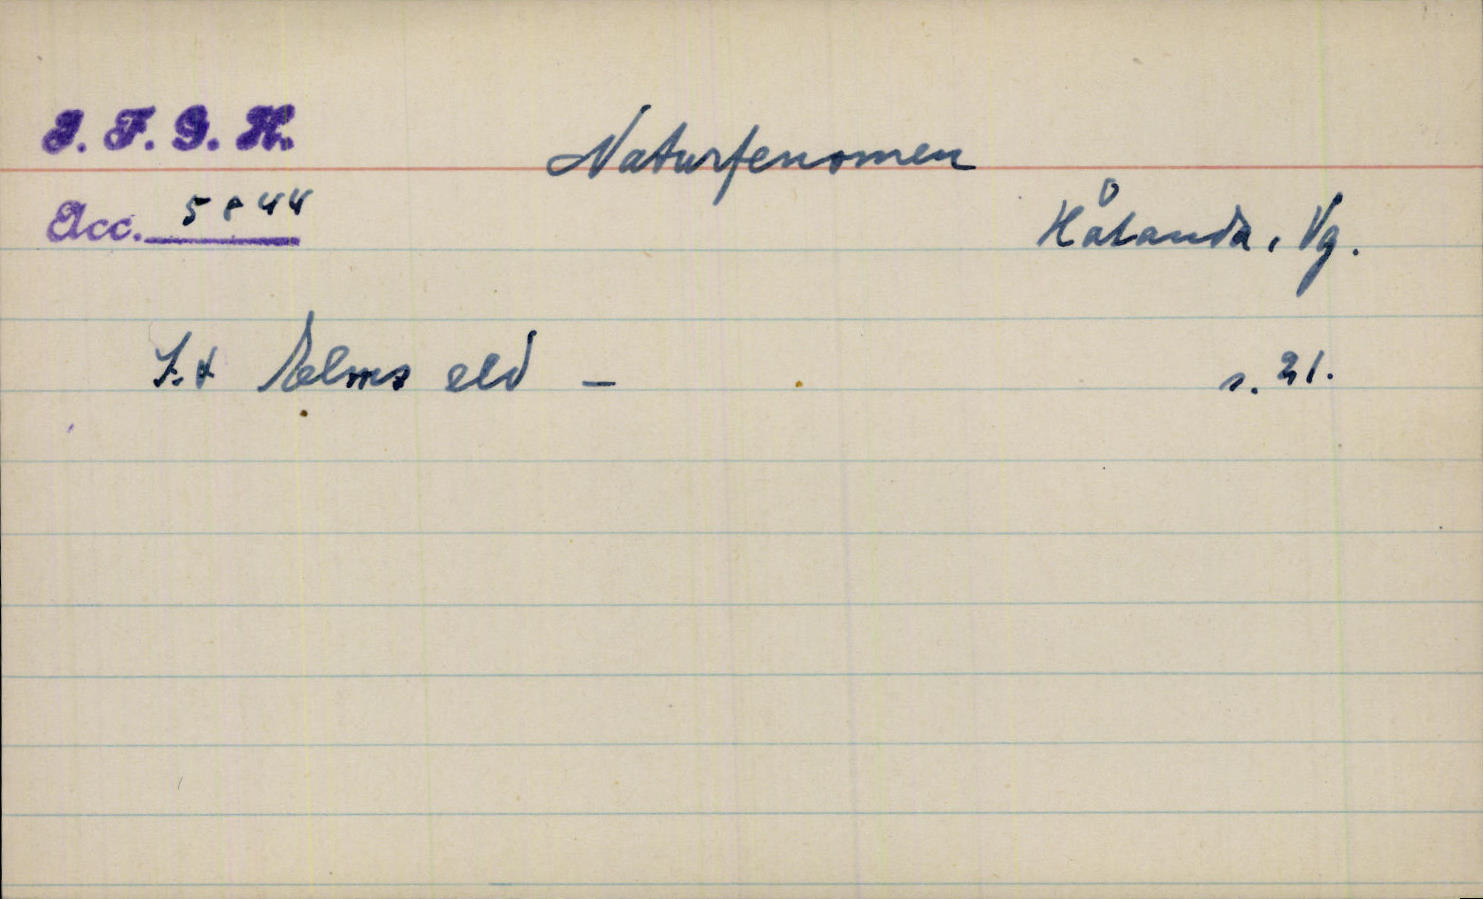 I. F. G. H.
Naturfenomen
Acc. 5844
Hålanda, Vg.
S:t Elms eld — s. 21.